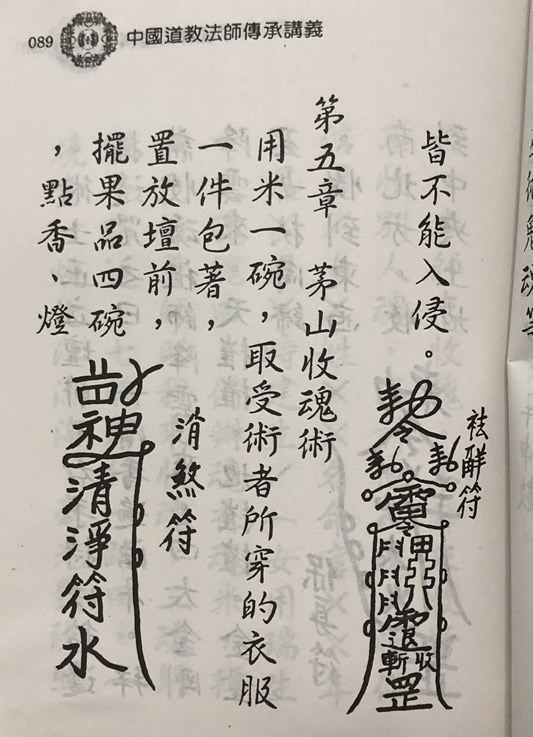 089 中國道教法師傳承講義
皆不能入侵。
祛辭符
第五章 茅山收魂術
用米一碗，取受術者所穿的衣服
一件包著，
置放壇前，
擺果品四碗
，點香、燈
消煞符
神
清淨符水
敕令
退
收
斬
罡